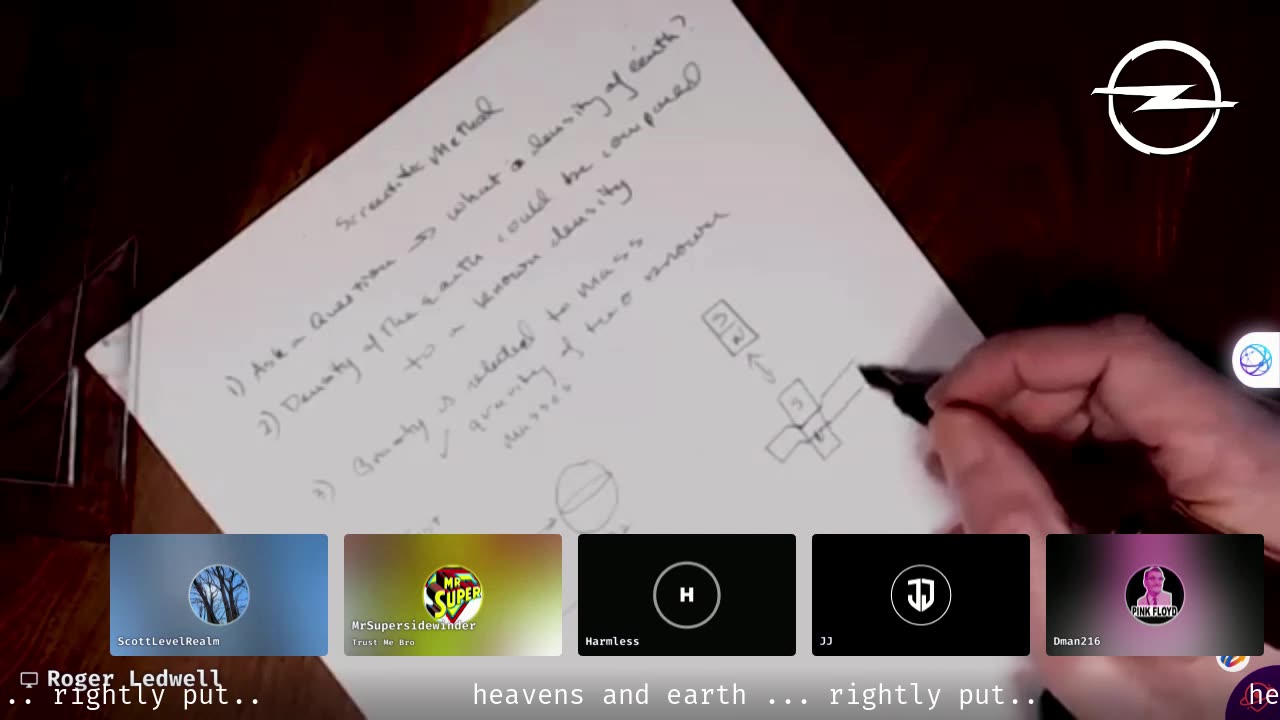 Scientific Method
1) Ask a Question → what is density of earth?
2) Density of the Earth could be compared
to a known density
3) Gravity is related to mass
gravity of two known
masses
ScottLevelRealm
MR
SUPER
MrSupersidewinder
Trust Me Bro
H
Harmless
JJ
JJ
PINK FLOYD
Dman216
Roger Ledwell
.. rightly put.. heavens and earth ... rightly put.. he